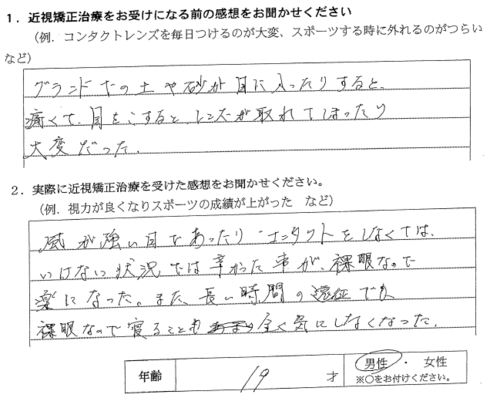 1．近視矯正治療をお受けになる前の感想をお聞かせください
（例．コンタクトレンズを毎日つけるのが大変、スポーツする時に外れるのがつらい
など）
グランドなの土や砂が目に入ったりすると、
痛くて、目をこすると、レンズが取れてしまったり
大変だった。
2．実際に近視矯正治療を受けた感想をお聞かせください。
（例．視力が良くなりスポーツの成績が上がった　など）
風が強い日であったり コンタクトをしなくては、
いけない状況では辛かった事が、裸眼なので
楽になった。また、長い時間の遠征でも
裸眼なので寝ることも全く気にしなくなった。
年齢 19 才 男性 ・ 女性
※○をお付けください。